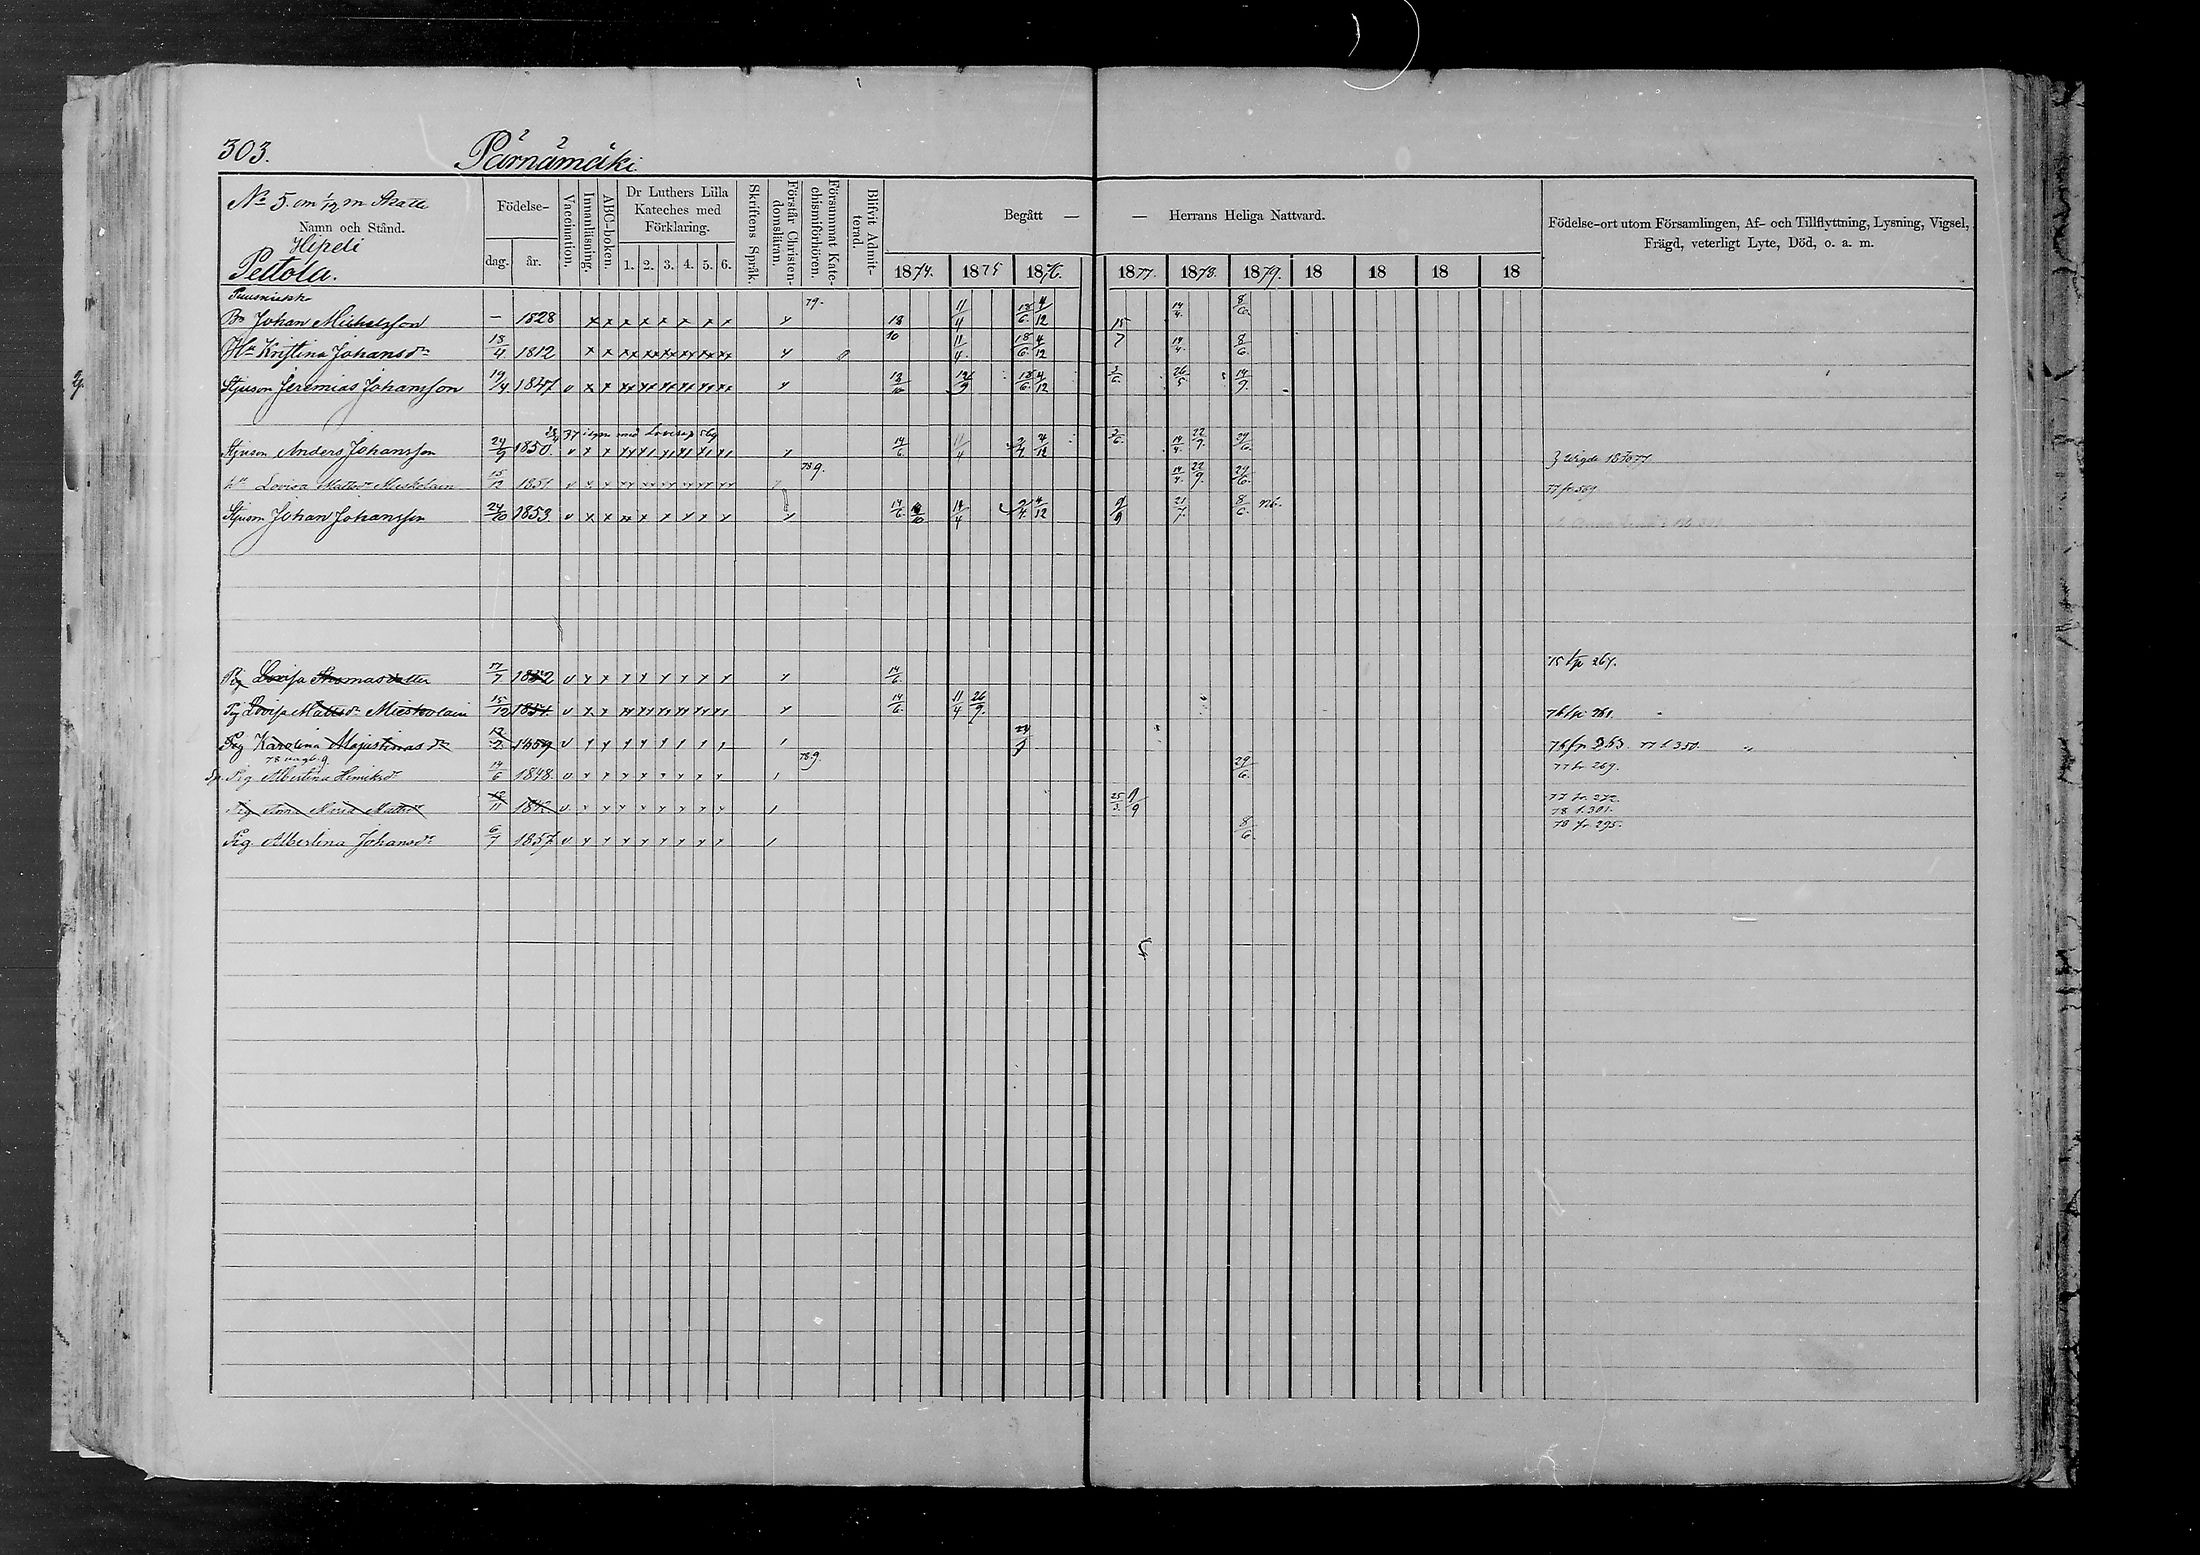 303.
Pärnämäki.
No 5. om 1/12 m Skatte
Namn och Stånd.
Hipeli
Peltola.
Födelse-
dag.
år.
Vaccination.
Innanläsning.
ABC-boken.
Dr Luthers Lilla
Kateches med
Förklaring.
1. 2. 3. 4. 5. 6.
Skriftens Språk.
Förstår Christen-
domsläran.
Försummat Kate-
chismiförhören.
Blifvit Admit-
terad.
Begått — — Herrans Heliga Nattvard.
1874. 1875 1876. 1877. 1878. 1879. 18 18 18 18
Födelse-ort utom Församlingen, Af- och Tillflyttning, Lysning, Vigsel,
Frägd, veterligt Lyte, Död, o. a. m.
79.
Bn Johan Michelsson — 1828 x x x x x x x x x 18 11/4 18/6. 4/12 15 14/4. 8/6.
Hu Kristina Johansdr 13/4 1812 x x xx xx xx xx xx xx 10 11/4. 18/6. 4/12 7 14/4. 8/6.
Styfson Jeremias Johansson 19/4. 1847 v x x xx xx xx xx xx xx 18/10 18/6. 4/12 3/6. 26/5 14/9.
Styfson Anders Johansson 24/9 1850. v x x xx xx xx xx xx xx 14/6 11/4 4/12 3/6. 14/4. 22/7. 29/6.
78 9.
hu Lovisa Mattsdr Mieskolain 15/12 1851 v x x xx xx xx xx xx xx 14/4. 22/9. 29/6. 77 fr 569
Styfson Johan Johansson 24/10 1853. v x x xx x x x x x 14/6. 14/4 4/12 9/9 21/7. 8/6.
Pig Lovisa Thomasdotter 17/7 1842 v x x x x x x x x 14/6. 75 t/p 267.
Pig Lovisa Mattsdr Mieskolain 15/12 1851. v x x xx xx xx xx xx xx 14/6. 11/4 26/9. 76 fr 261.
Pig Karolina Majastinas dr 12/2 1859 v 76 fr 263. 77 t. 350.
78 9.
Pig Albertina Henriksdr 14/6 1848. v x x x x x x x x 29/6. 77 fr 269.
Pig Anna Maria Mattsdr 12/11 1842. v 25/3. 9/9 77 fr. 272.
78 t. 301.
Pig. Albertina Johansdr 6/7 1857. v x x x x x x x x 8/6. 78 fr. 295.